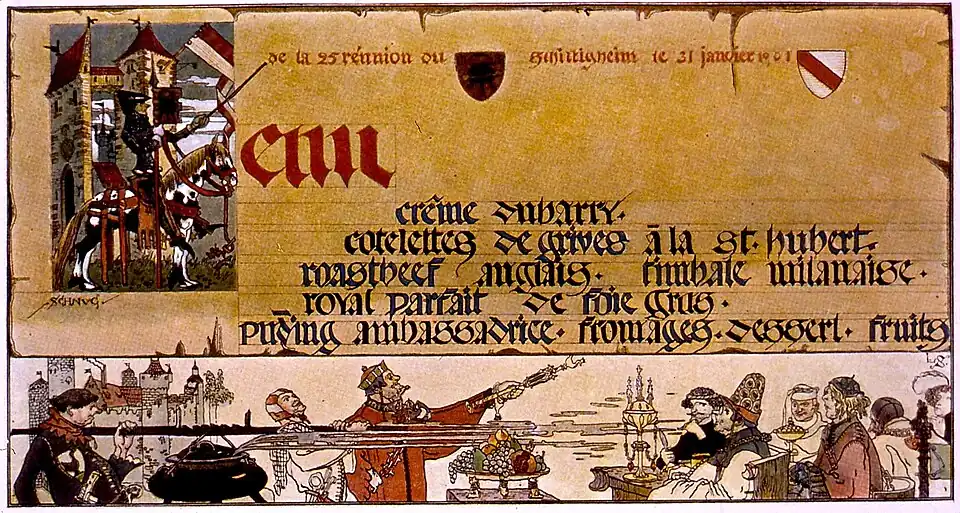 de la 25 réunion du Schiltigheim le 31 janvier 1901
enu
crême dubarry.
cotelettes de grives à la st. hubert.
roastbeef anglais. timbale milanaise.
royal parfait de foie gras.
puding ambassadrice. fromages. dessert. fruits
SCHNUG